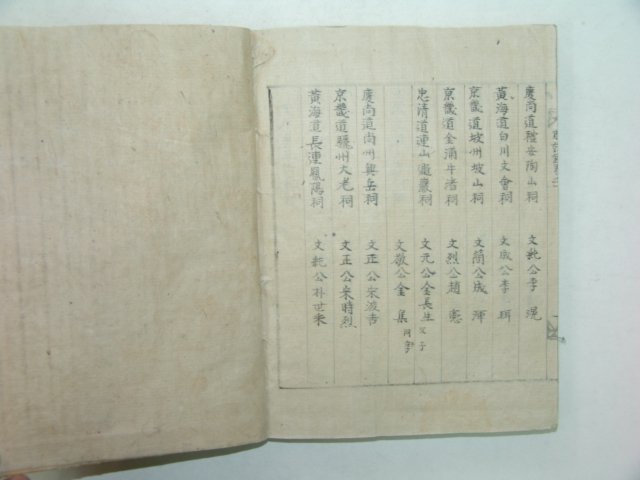 慶尚道禮安陶山祠 文純公李滉
黃海道白川文會祠 文成公李珥
京畿道坡州坡山祠 文簡公成渾
京畿道金浦牛渚祠 文烈公趙憲
忠清道連山遯巖祠 文元公金長生父子
文敬公金集同享
慶尚道尚州興岳祠 文正公宋浚吉
京畿道驪州大老祠 文正公宋時烈
黃海道長連鳳陽祠 文純公朴世采